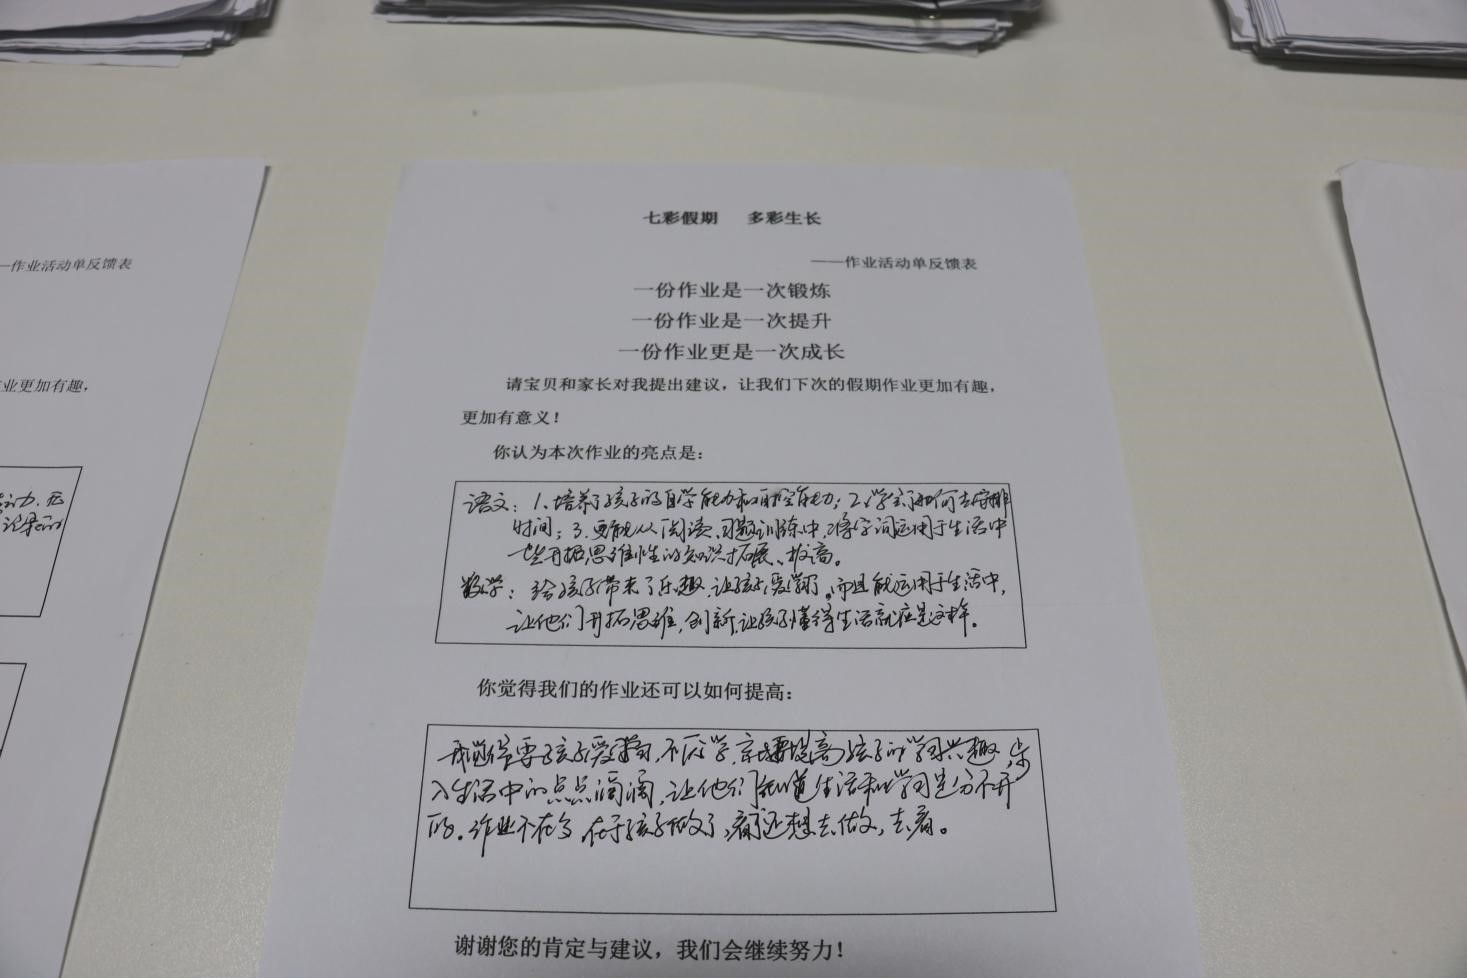 七彩假期 多彩生长
——作业活动单反馈表
一份作业是一次锻炼
一份作业是一次提升
一份作业更是一次成长
请宝贝和家长对我提出建议，让我们下次的假期作业更加有趣，
更加有意义！
你认为本次作业的亮点是：
语文：1、培养了孩子的自学能力和自控能力；2、学会了如何去安排
时间；3、更能从阅读、习题训练中，将字词运用于生活中
一些开拓思维性的知识拓展、提高。
数学：给孩子带来了乐趣，让孩子爱学了。而且能运用于生活中，
让他们开拓思维，创新，让孩子懂得生活就应是这样。
你觉得我们的作业还可以如何提高：
我觉得要孩子爱学习，不厌学，就要提高孩子的学习兴趣，步
入生活中的点点滴滴，让他们知道生活和学习是分不开
的。作业不在多，在于孩子做了，还想去做，去看。
谢谢您的肯定与建议，我们会继续努力！
—作业活动单反馈表
业更加有趣，